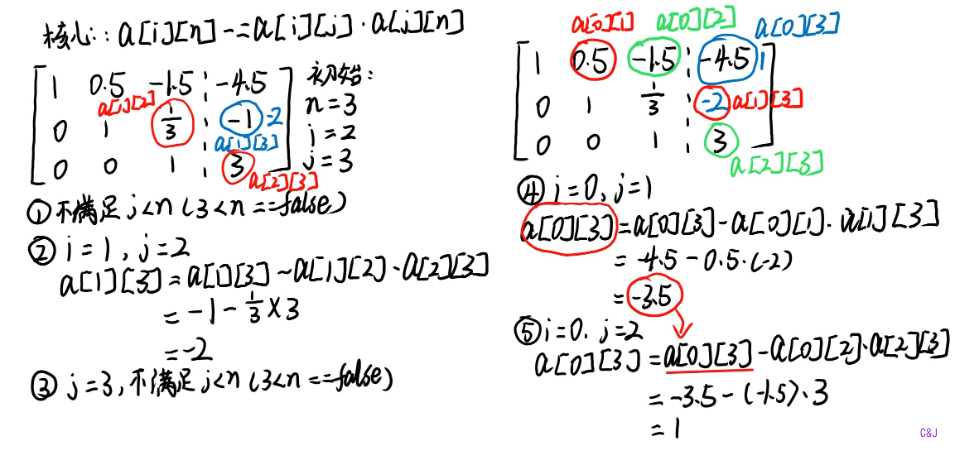 核心: a[i][n] -= a[i][j]·a[j][n]
1 0.5 -1.5 -4.5
a[1][2]
0 1 1/3 -1 -2
a[1][3]
0 0 1 3
a[2][3]
初始:
n=3
i=2
j=3
① 不满足 j<n (3<n==false)
② i=1, j=2
a[1][3]=a[1][3]-a[1][2]·a[2][3]
=-1-1/3×3
=-2
③ j=3,不满足 j<n (3<n==false)
a[0][1] a[0][2] a[0][3]
1 0.5 -1.5 -4.5 1
0 1 1/3 -2 a[1][3]
0 0 1 3
a[2][3]
④ i=0, j=1
a[0][3]=a[0][3]-a[0][1]·a[1][3]
=-4.5-0.5·(-2)
=-3.5
⑤ i=0, j=2
a[0][3]=a[0][3]-a[0][2]·a[2][3]
=-3.5-(-1.5)·3
=1
C&J